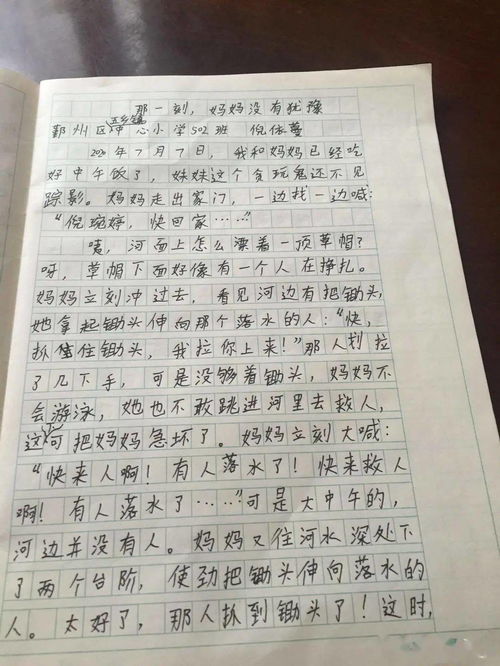 那一刻，妈妈没有犹豫
鄞州区五乡镇中心小学502班 倪依蔓
2020年7月7日，我和妈妈已经吃
好中午饭了，妹妹这个贪玩鬼还不见
踪影。妈妈走出家门，一边找一边喊：
“倪琬婷，快回家……”
咦，河面上怎么漂着一顶草帽？
呀，草帽下面好像有一个人在挣扎。
妈妈立刻冲过去，看见河边有把锄头，
她拿起锄头伸向那个落水的人：“快，
抓住锄头，我拉你上来！”那人划拉
了几下手，可是没够着锄头，妈妈不
会游泳，她也不敢跳进河里去救人，
这下可把妈妈急坏了。妈妈立刻大喊：
“快来人啊！有人落水了！快来救人
啊！有人落水了……”可是大中午的，
河边并没有人。妈妈又往河水深处下
了两个台阶，使劲把锄头伸向落水的
人。太好了，那人扒到锄头了！这时，